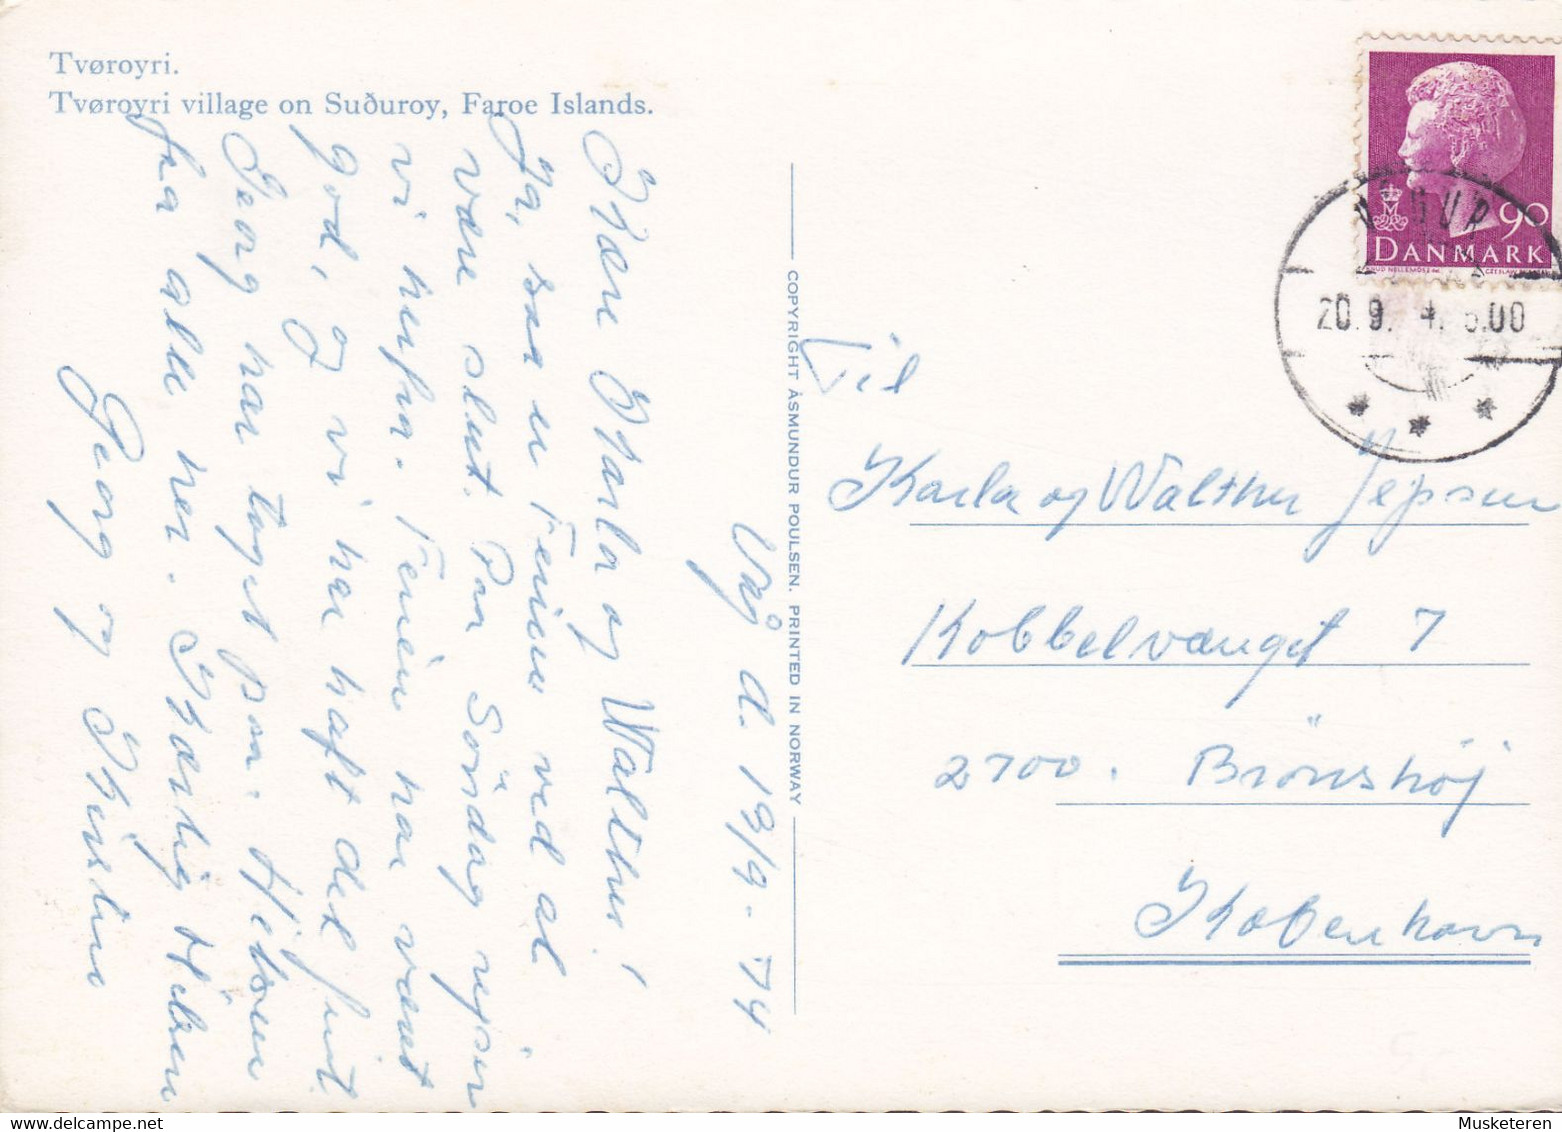 Tvøroyri.
Tvøroyri village on Suðuroy, Faroe Islands.
Våg d. 19/9-74
Kære Karla og Walther!
Ja, saa er Ferien ved at
være slut. Paa Söndag rejser
vi herfra. Ferien har været
god, og vi har haft det fint
Georg har taget paa. Hilsen
fra alle her. Kærlig Hilsen
Georg og Kirstine
COPYRIGHT ÅSMUNDUR POULSEN. PRINTED IN NORWAY
90
DANMARK
VÁGUR
20.9. 4. 00
Til
Karla og Walther Jepsen
Kobbelvænget 7
2700. Brönshöj
København
Musketeren